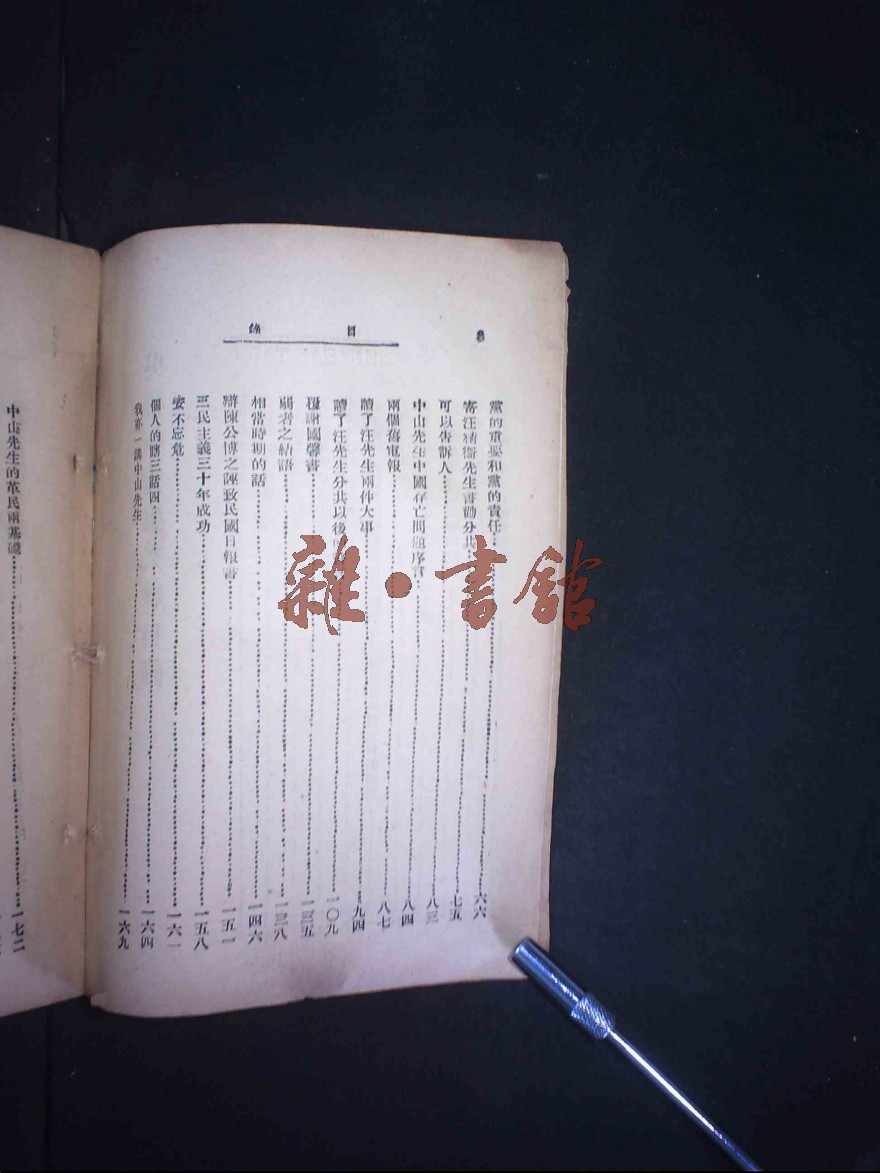 目錄
黨的重要和黨的責任 六六
寄汪精衛先生書勸分共 七五
可以告訴人 八三
中山先生中國存亡問題序言 八四
兩個舊電報 八七
讀了汪先生兩件大事 九四
讀了汪先生分共以後 一〇九
謝國馨書 一三五
弱者之結語 一三八
相當時期的話 一四六
辯陳公博之陳致民國日報書 一五一
三民主義三十年成功 一五八
安不忘危 一六一
個人的瞎三話四 一六四
我亦一講中山先生 一六九
中山先生的革民兩基礎 一七二
雜·書館